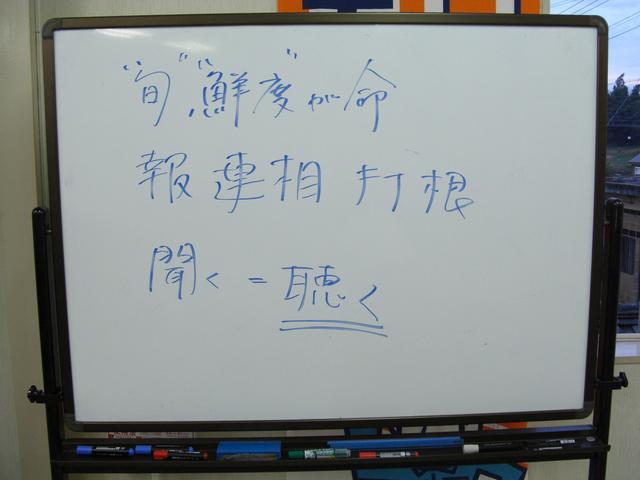 "旬" "鮮度"が命
報連相 打根
聞く = 聴く